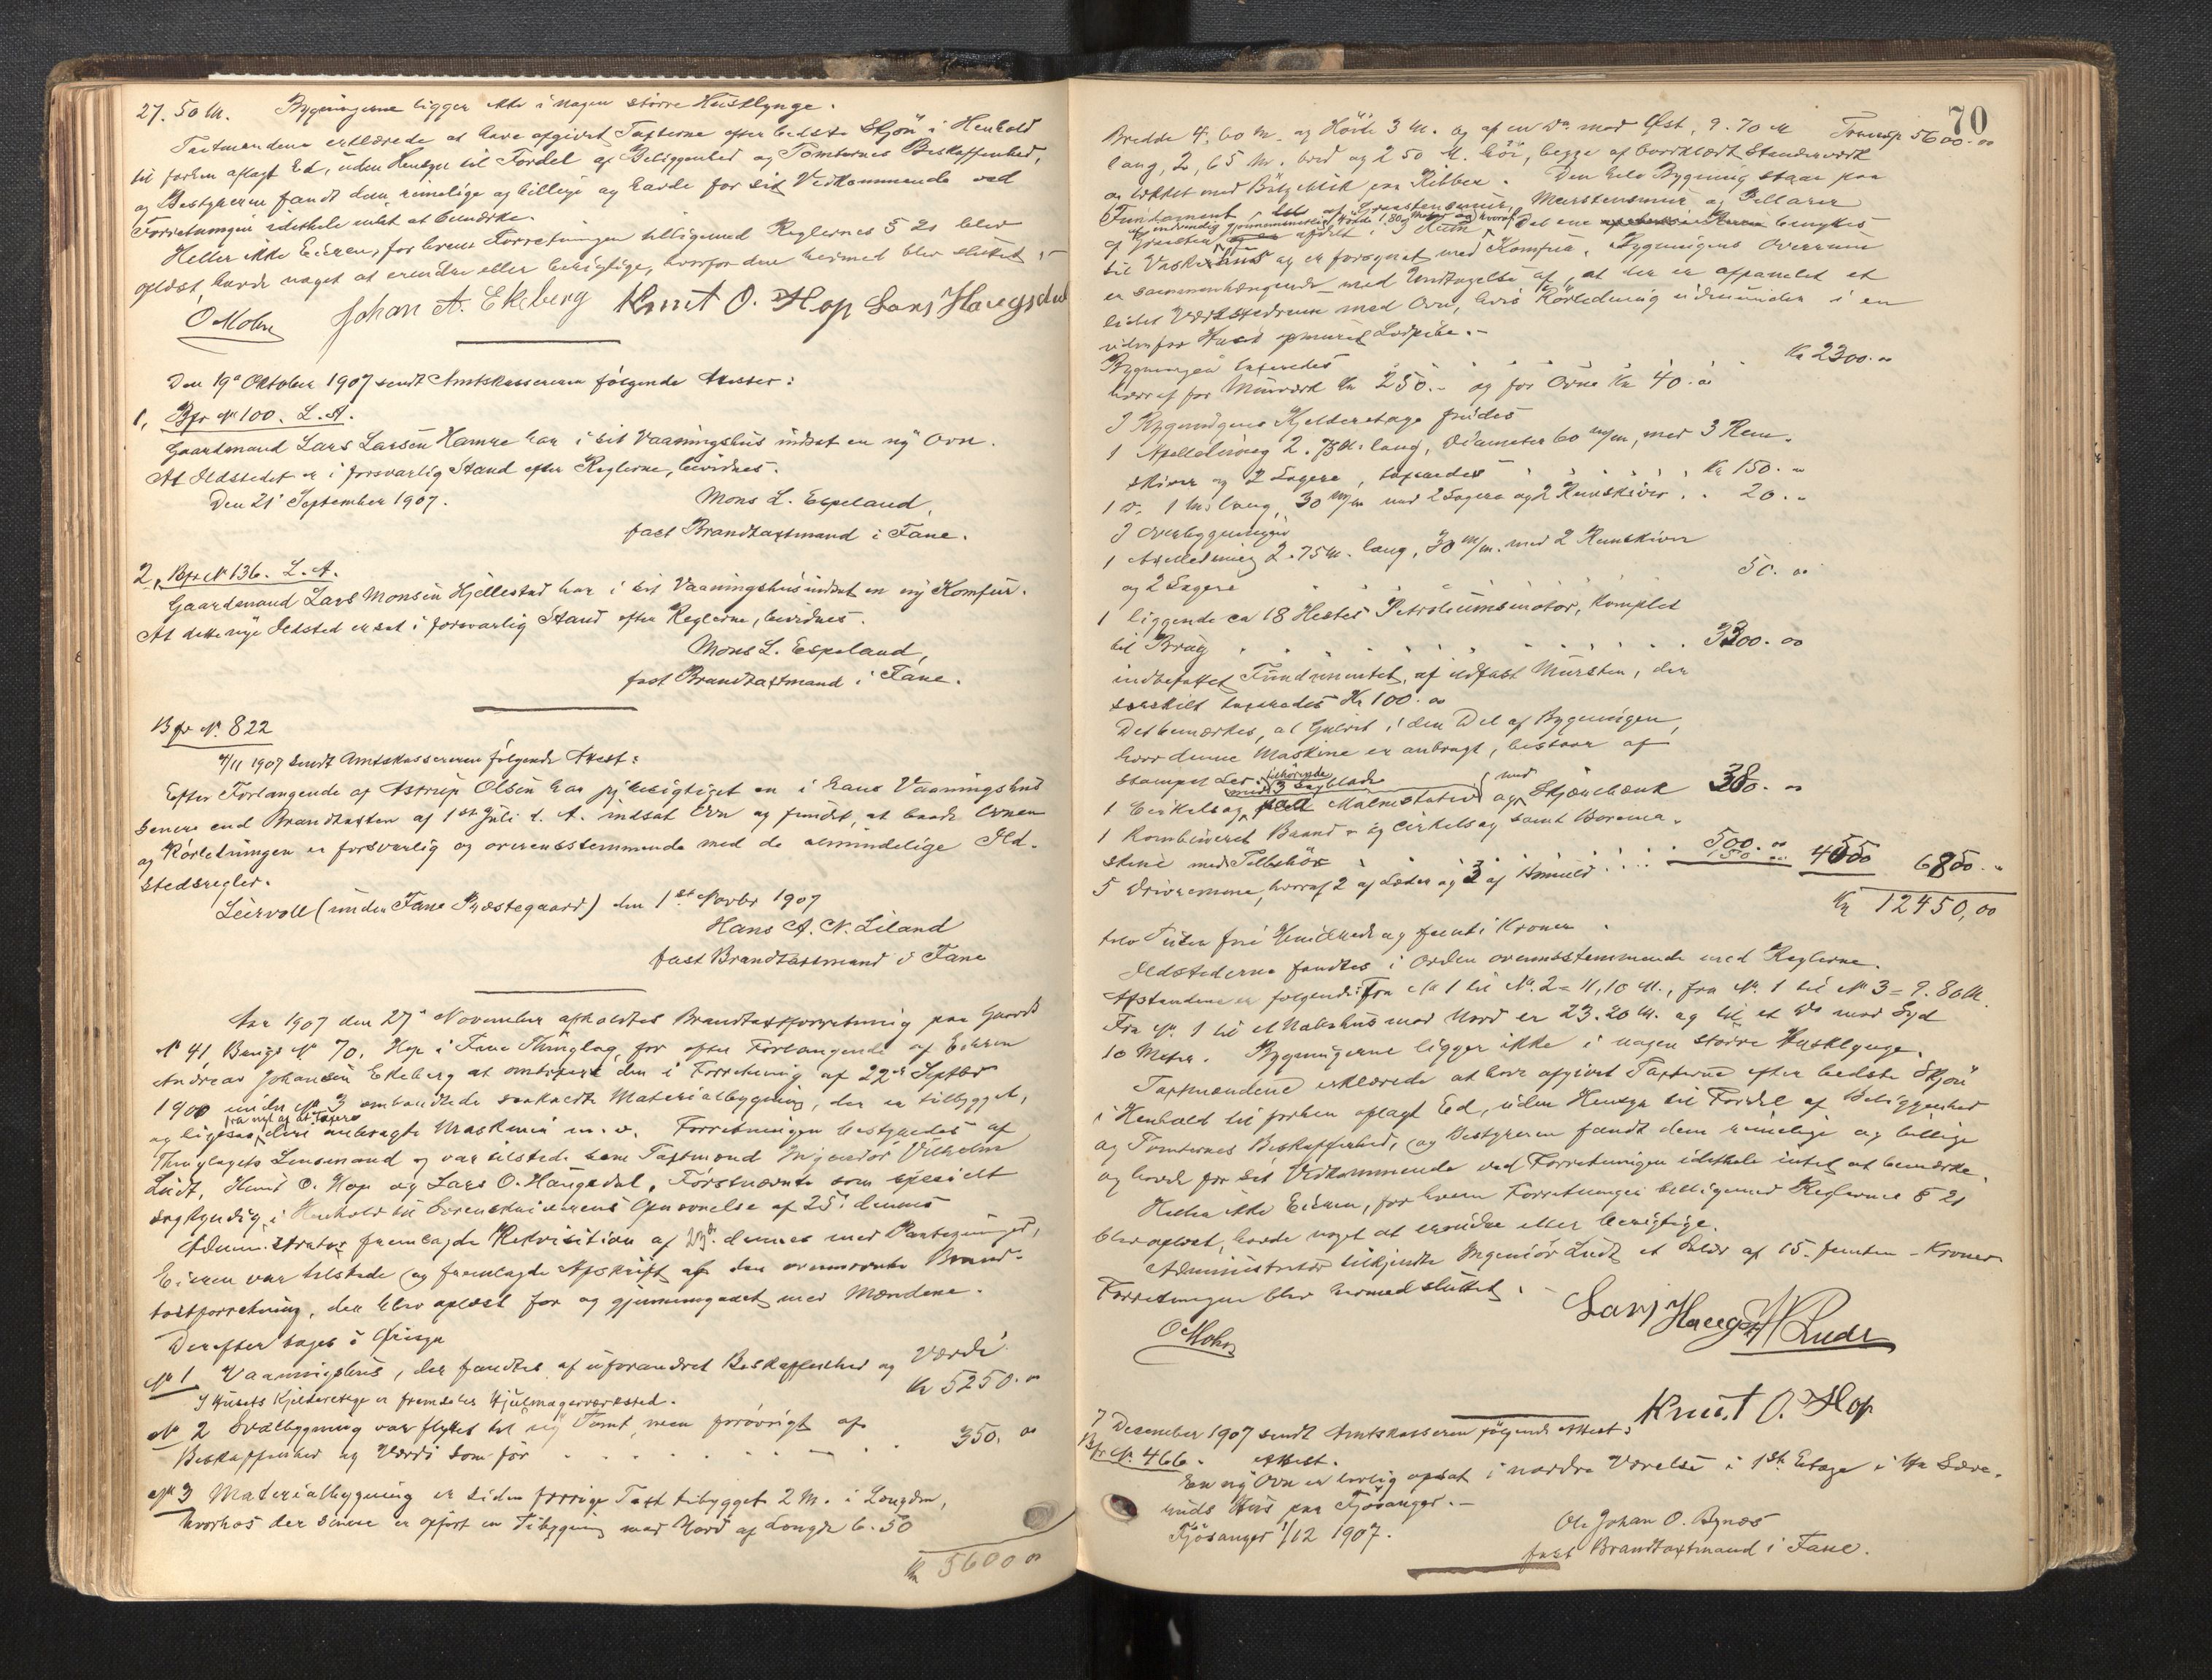 27.50 M. Bygningerne ligger ikke i nogen större Husklynge.
Taxtmændene erklærede at have afgivet Taxterne efter bedste Skjön i Henhold
til forhen aflagt Ed, uden Hensyn til Fordel af Beliggenhed og Tomternes Beskaffenhed,
og Bestyreren fandt dem rimelige og billige og havde for sit Vedkommende ved
Forretningen idethele intet at bemærke.
Heller ikke Eieren, for hvem Forretningen tilligemed Reglernes § 21 blev
oplæst, havde noget at erindre eller berigtige, hvorfor den hermed blev sluttet.
O Mohn Johan A. Ekeberg Knut O. Hop Lars Haugsdal
Den 19de Oktober 1907 sendt Amtskassereren følgende Attester:
1, Bfr No 100. L. A.
Gaardmand Lars Larsen Hamre har i sit Vaaningshus indsat en ny Ovn.
At Ildstedet er i forsvarlig Stand efter Reglerne, bevidnes.
Den 21' September 1907.
Mons L. Espeland,
fast Brandtaxtmand i Fane.
2, Bfr No 136. L. A.
Gaardmand Lars Monsen Hjellestad har i sit Vaaningshus indsat en ny Komfur.
At dette nye Ildsted er sat i forsvarlig Stand efter Reglerne, bevidnes.
Mons L. Espeland,
fast Brandtaxtmand i Fane.
Bfr No. 822
/11 1907 sendt Amtskassereren følgende Attest:
Efter Forlangende af Astrup Olsen har jeg besigtiget en i hans Vaaningshus
senere end Brandtaxten af 1ste Juli d. A. indsat Ovn og fundet, at baade Ovnen
og Rörledningen er forsvarlig og overensstemmende med de almindelige Ild-
stedsregler.
Leirvoll (under Fane Præstegaard) den 1ste Novbr 1907
Hans A. N. Liland
fast Brandtaxtmand i Fane
Aar 1907 den 27de November afholdtes Brandtaxtforretning paa Gaards
No 41 Brugs No 70, Hop i Fane Thinglag, for efter Forlangende af Eieren
Andreas Johansen Ekeberg at omtaxere den i Forretning af 22de Septbr
1900 under No 3 ombandlede saakaldte Materialbygning, der er tilbygget,
og ligesaa fra nyt af at taxere deri anbragte Maskineri m. v. Forretningen bestyredes af
Thinglagets Lensmand og var tilstede som Taxtmænd Ingeniör Vilhelm
Lüdt, Knut O. Hop og Lars O. Haugsdal, Förstnævnte som specielt
sagkyndig i Henhold til Sorenskriverens Opnævnelse af 25' dennes
Administrator fremlagde Rekvisition af dennes med Paategninger,
Eieren var tilstede og fremlagde Afskrift af den ovennævnte Brand-
taxtforretning, der blev oplæst for og gjennemgaaet med Mændene.
Derefter toges i Öiesyn
No 1. Vaaningshus, der fandtes af uforandret Beskaffenhed og Værdi
Kr 5250.00
I Husets Kjelderetage er fremdeles Hjulmagerværksted.
No 2 Svalbygning var flyttet til ny Tomt, men forövrigt af
Beskaffenhed og Værdi som för . . . . . 350.00
No 3 Materialbygning er siden forrige Taxt tilbygget 2 M. i Længden,
hvorhos der senere er opfört en Tilbygning mod Nord af Længde 6.50
Kr 5600 00
70
Bredde 4,60 M. og Höide 3 M. og af en Do mod Öst, 9.70 M Transp 5600.00
lang, 2,65 M. bred og 2 50 M. höi, begge af bordklædt Stenderværk
og tækket med paa Ribber. Den hele Bygning staar paa
Fundament, af Graastensmur, Murstensmur og Pillarer
af Graasten afdelt i 3 Rum, det ene benyttes
til Vaskehus og er forsynet med Komfur. Bygningens Overrum
er sammenhængende med Undtagelse af, at der er afpanelet et
lidet Værkstedrum med Ovn, hvis Rörledning udmunder i en
udenfor Huset opmuret Lodpibe.-
Bygningen taxeredes . . . . . Kr 2300.00
heraf for Murværk Kr 250.- og for Ovne Kr 40.00
I Bygningens Kjelderetage findes
1 Axelledning 2.75 M. lang, Diameter 60 m/m, med 3 Rem-
skiver og 2 Lagere, taxeredes . . . . . Kr 150.00
1 Do 1 M. lang, 30 m/m med 2 Lagere og 2 Remskiver . . 20.00
I Overbygningen
1 Axelledning 2.75 M. lang, 30 m/m. med 2 Remskiver
og 2 Lagere 50.00
1 liggende ca 18 Hestes Petroleumsmotor, komplet
til Brug . . . . . . 3300.00
indbefattet Fundamentet, af ildfast Mursten, der
særskilt taxeredes Kr 100.00
Det bemærkes, at Gulvet i den Del af Bygningen,
hvor denne Maskine er anbragt, bestaar af
stampet Ler.
1 Cirkelsag med 3 tilhörende Sagblade Malmstativ og med Skjærebænk 380.00
1 kombineret Baand- og Cirkelsag samt Borema-
skine med Tilbehör . . . . 500.00
5 Drivremme, hvoraf 2 af Læder og 3 af Bomuld . . . 150.00 4550 6850.00
Kr 12450,00
tolv Tusen fire Hundrede og femti Kroner.
Ildstederne fandtes i Orden overensstemmende med Reglerne.
Afstandene er følgende: Fra No 1 til No. 2 = 11,10 M., fra No. 1 til No 3 = 9.80 M.
Fra No. 1 til et Nabohus mod Nord er 23.20 M. og til et Do mod Syd
10 Meter. Bygningerne ligger ikke i nogen större Husklynge.
Taxtmændene erklærede at have afgivet Taxterne efter bedste Skjön
i Henhold til forhen aflagt Ed, uden Hensyn til Fordel af Beliggenhed
og Tomternes Beskaffenhed, og Bestyreren fandt dem rimelige og billige
og havde for sit Vedkommende ved Forretningen idethele intet at bemærke.
Heller ikke Eieren, for hvem Forretningen tilligemed Reglernes § 21
blev oplæst, havde noget at erindre eller berigtige.
Administrator tilkjendte Ingeniör Lüdt et Salær af 15-femten-Kroner
Forretningen blev hermed sluttet.
O Mohn Lars Haugsdal Lüdt
Knut O. Hop
7 Desember 1907 sendt Amtskassereren følgende Attest:
Bfr No. 466. Attest.
En ny Ovn er lovlig opsat i nordre Værelse i 1ste Etage i Hr Søre-
nsds Hus paa Fjösanger.-
Fjösanger 1/12 1907.
Ole Johan O. Bynæs
fast Brandtaxtmand i Fane.